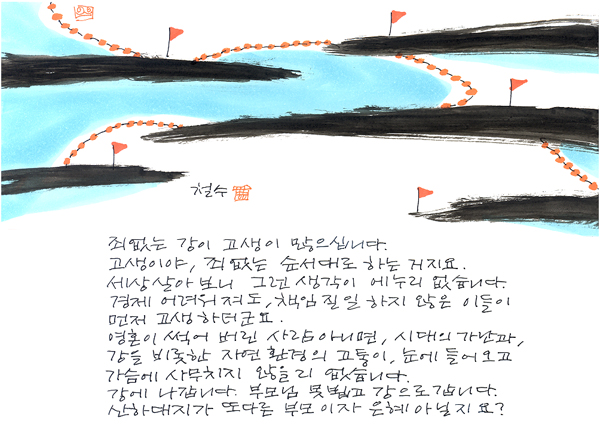 철수
죄없는 강이 고생이 많으십니다.
고생이야, 죄 없는 순서대로 하는 거지요.
세상살아 보니 그런 생각이 에누리 없습니다.
경제 어려워져도, 책임 질 일 하지 않은 이들이
먼저 고생 하더군요.
영혼이 썩어 버린 사람 아니면, 시대의 가난과,
강을 비롯한 자연 환경의 고통이, 눈에 들어 오고
가슴에 사무치지 않을리 없습니다.
강에 나갑니다. 부모님 뵙고 강으로 갑니다.
산하대지가 또다른 부모이자 은혜 아닐지요?